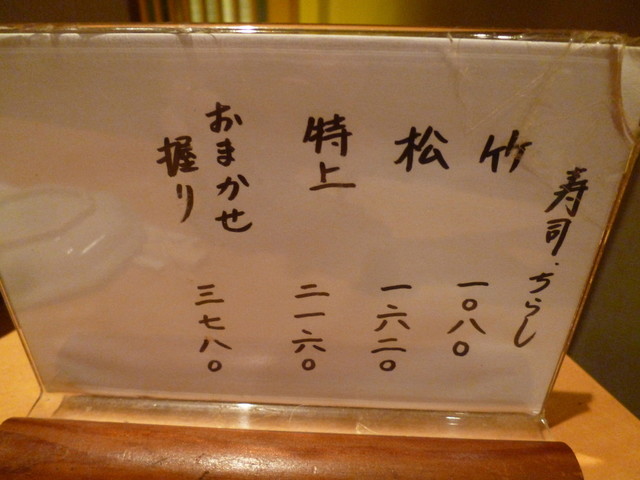 寿司・ちらし
竹 一〇八〇
松 一六二〇
特上 二一六〇
おまかせ
握り 三七八〇